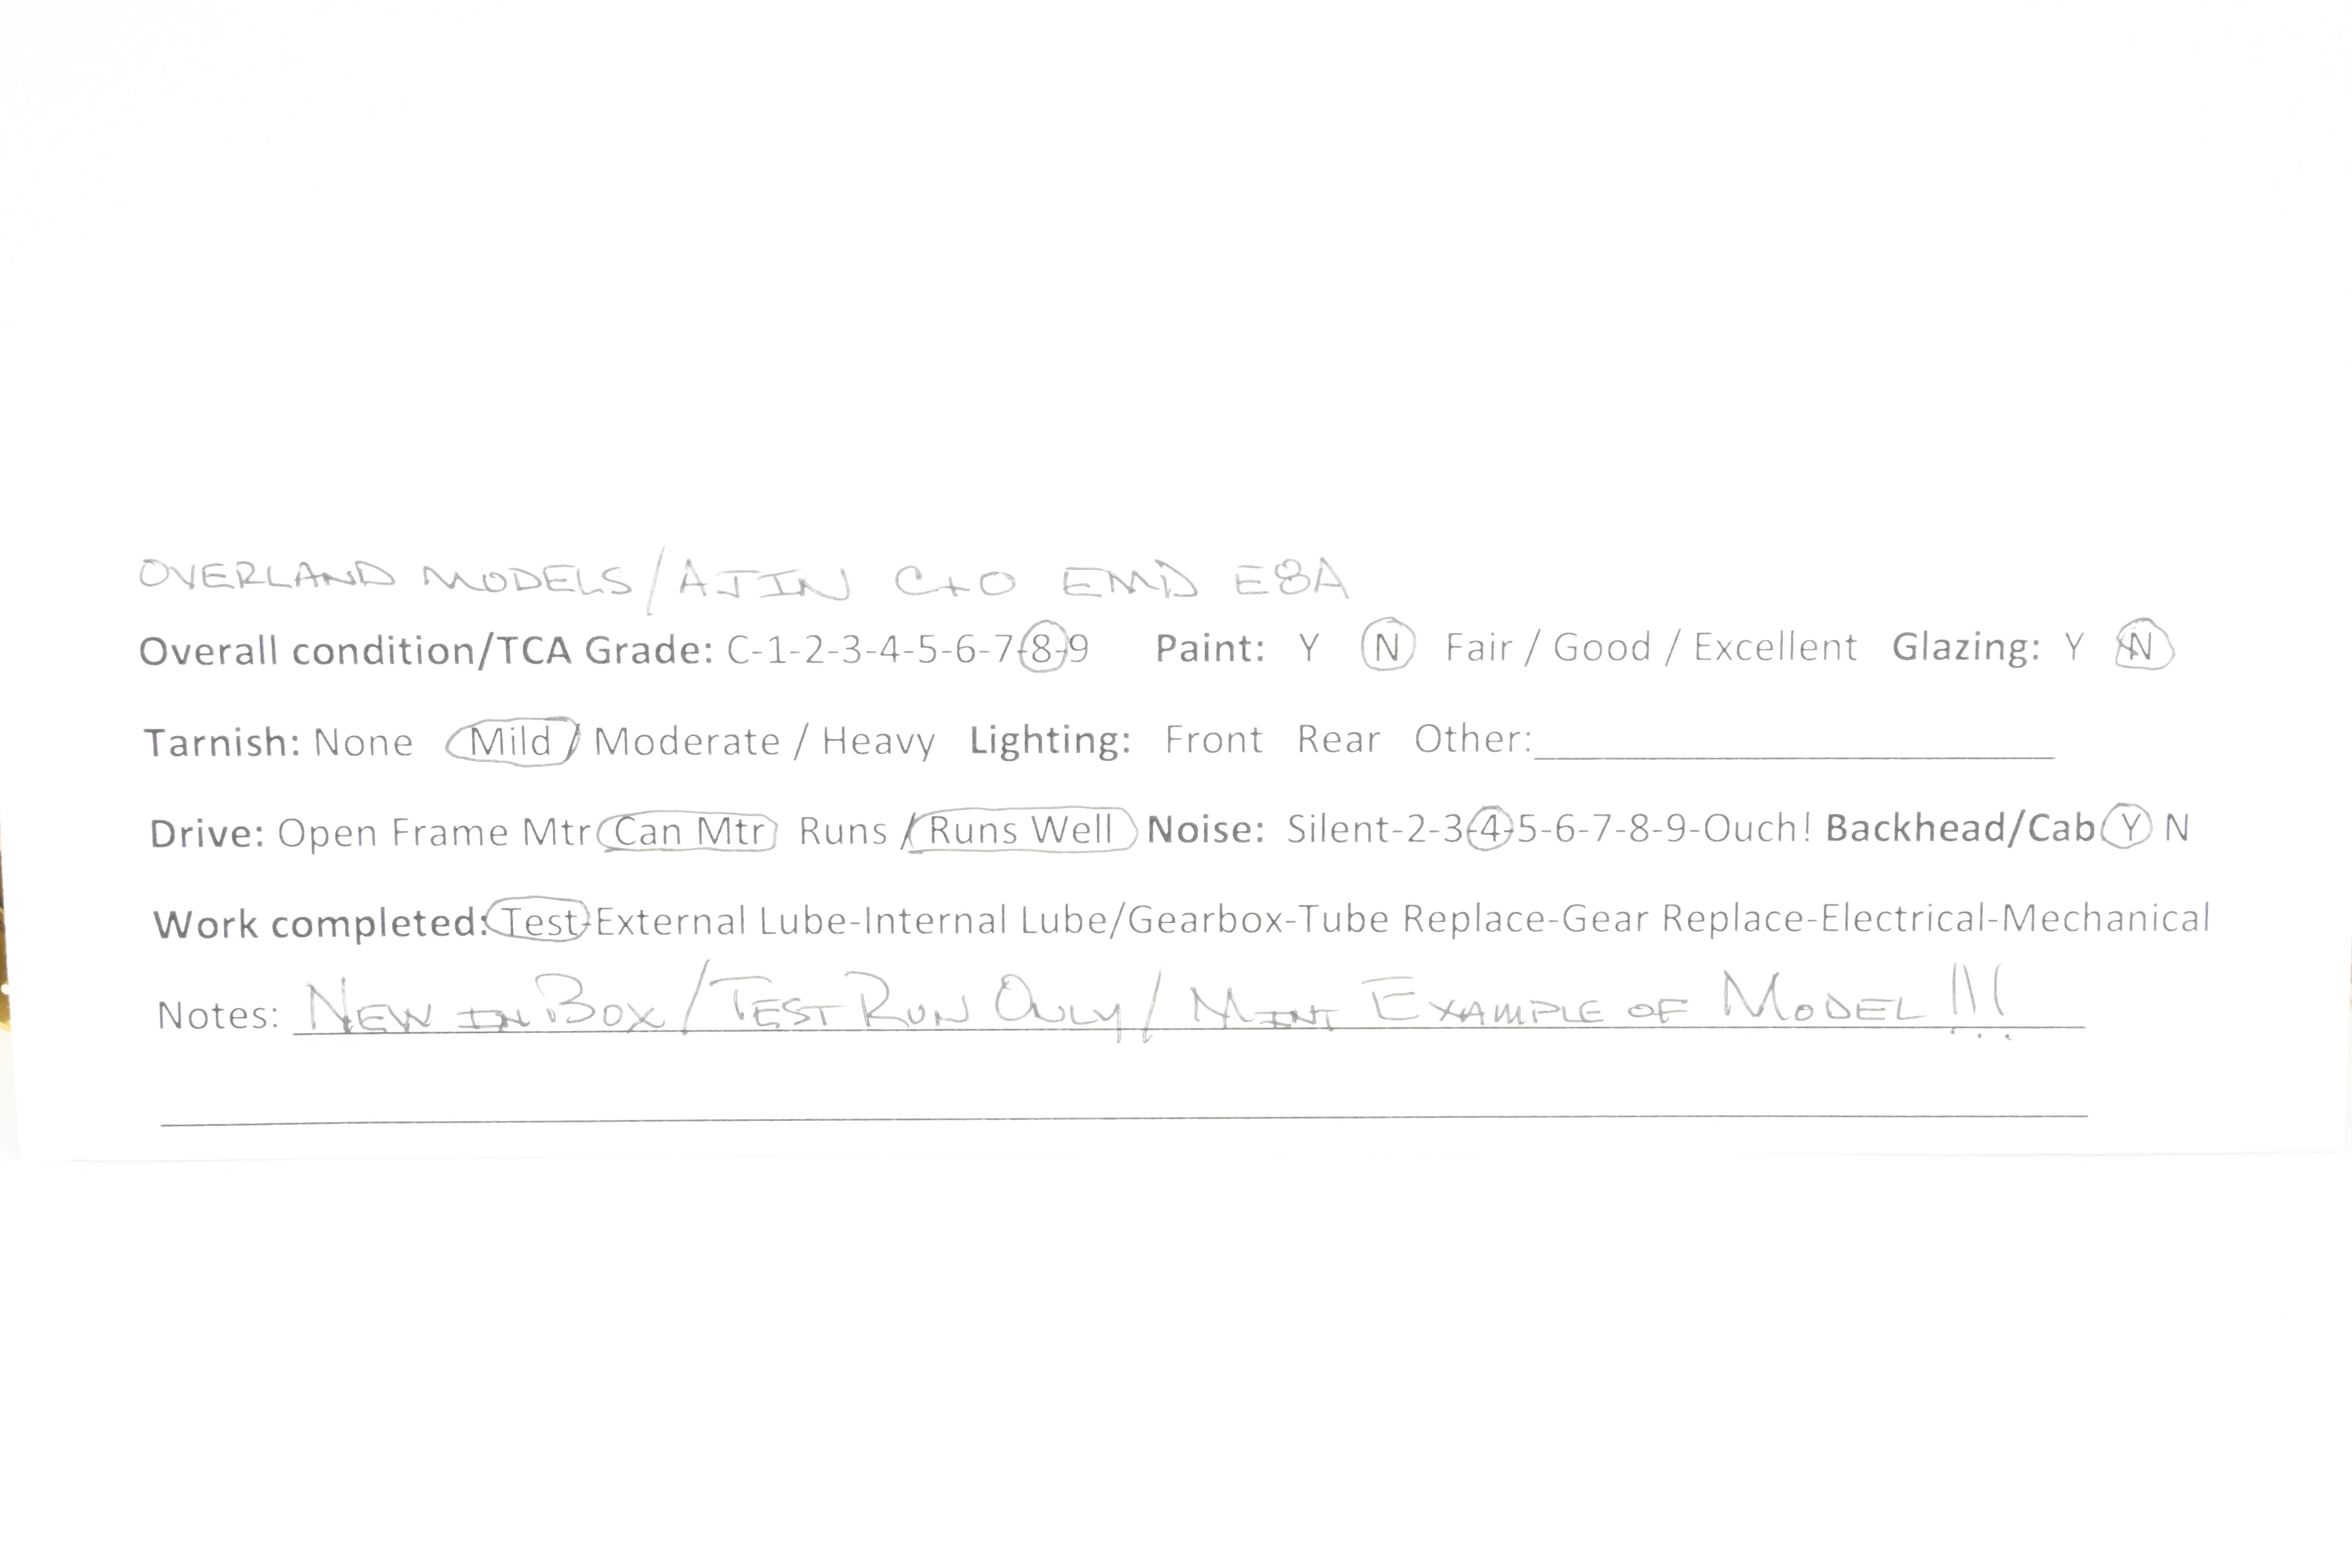 OVERLAND MODELS/AJIN C+O EMD E8A
Overall condition/TCA Grade: C-1-2-3-4-5-6-7-8-9 Paint: Y N Fair / Good / Excellent Glazing: Y N
Tarnish: None Mild / Moderate / Heavy Lighting: Front Rear Other:
Drive: Open Frame Mtr Can Mtr Runs / Runs Well Noise: Silent-2-3-4-5-6-7-8-9-Ouch! Backhead/Cab Y N
Work completed: Test-External Lube-Internal Lube/Gearbox-Tube Replace-Gear Replace-Electrical-Mechanical
Notes: NEW IN BOX/TEST RUN ONLY/MINT EXAMPLE OF MODEL!!!